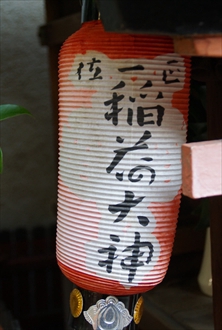 正一位
稲荷大神